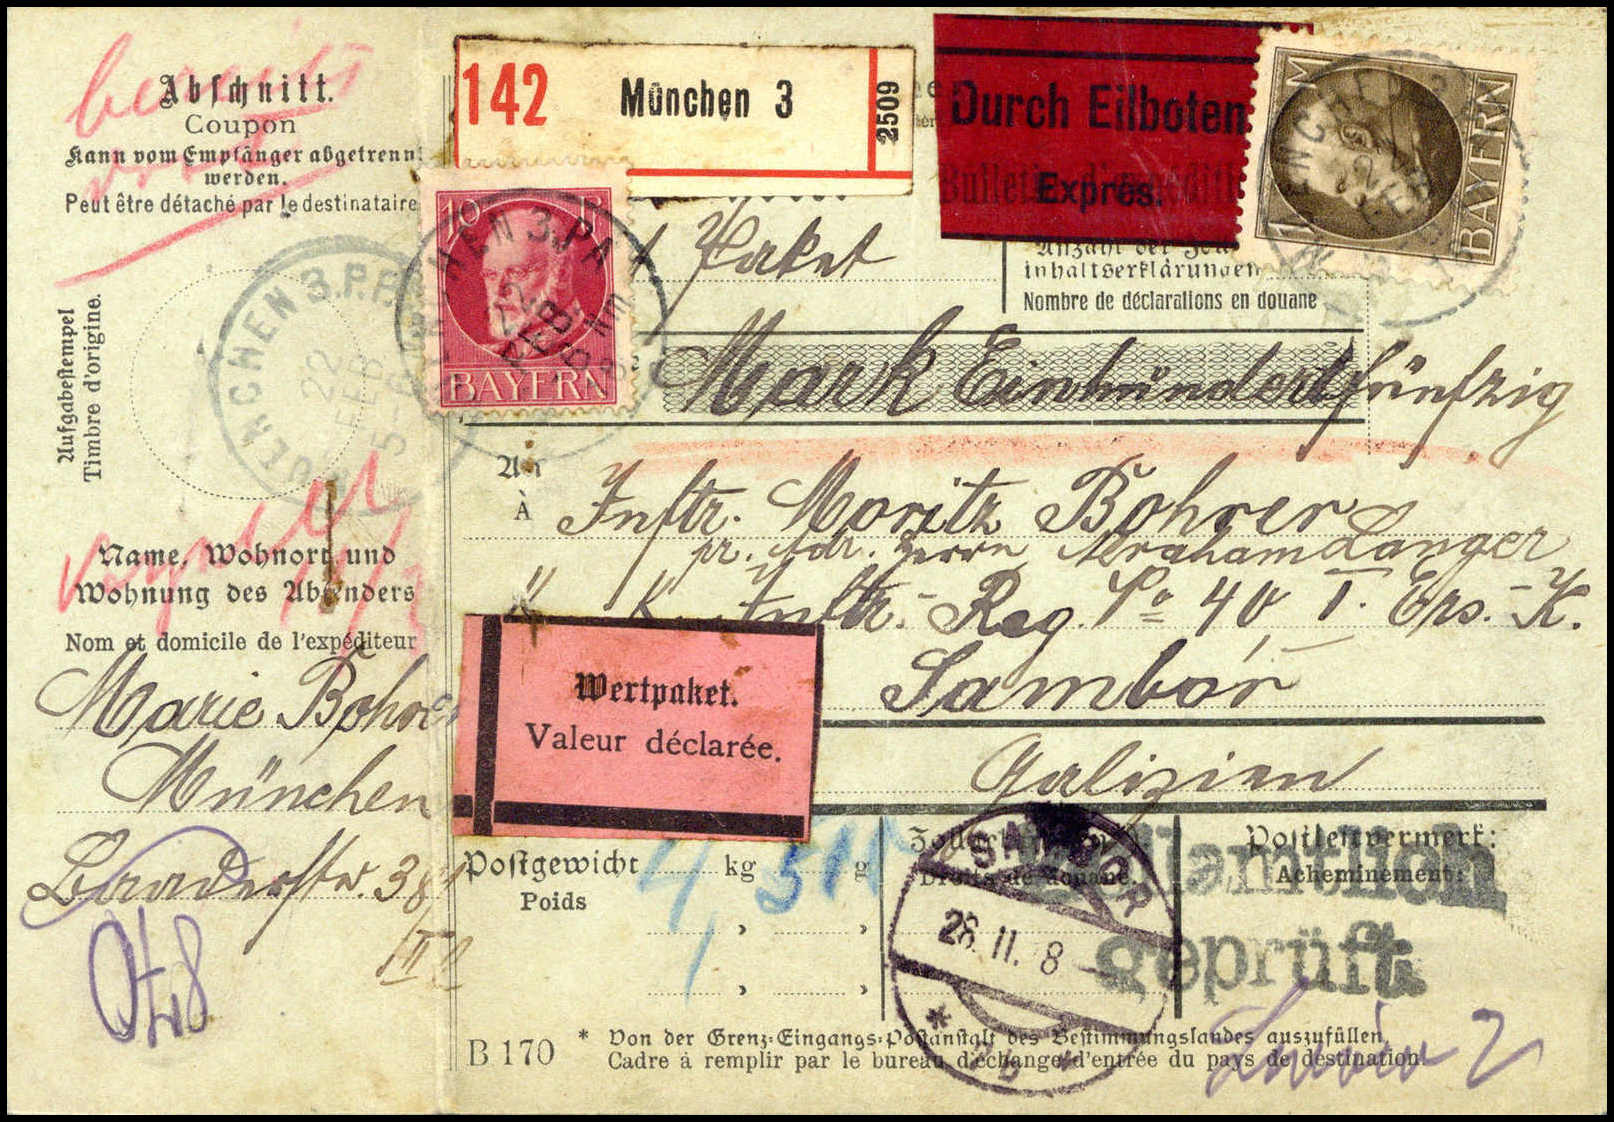 Abschnitt.
Coupon
Kann vom Empfänger abgetrennt
werden.
Peut être détaché par le destinataire
bereits
Aufgabestempel
Timbre d'origine.
MUENCHEN 3.P.P.
22
FEB
5-6
Name, Wohnort und
Wohnung des Absenders
Nom et domicile de l'expéditeur
Marie Bohrer
München
Baaderstr. 38/
III
142 München 3
2509
Durch Eilboten
Exprès.
1 M
BAYERN
10 Pf
BAYERN
1 Paket
Anzahl der Zoll-
inhaltserklärungen
Nombre de déclarations en douane
Mark Einhundertfünfzig
An
À
Inftr. Moritz Bohrer
pr. Adr. Herrn Abraham Langer
K. Inftr.- Reg. No 40 I. Ers.-K.
Sambór
Galizien
Wertpaket.
Valeur déclarée.
Postgewicht
Poids
4 kg 510 g
Droits de douane.
Postleitvermerk:
Acheminement:
Zollamtlich
geprüft
SAMBOR
26.II.8
2b
B 170
* Von der Grenz-Eingangs-Postanstalt des Bestimmungslandes auszufüllen
Cadre à remplir par le bureau d'échange d'entrée du pays de destination